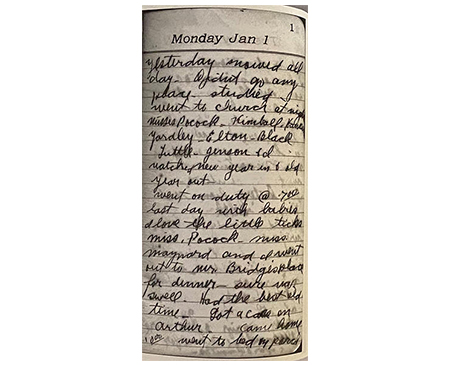 1
Monday Jan 1
yesterday snowed all
day. I didnt go any
place, studied
went to church at night
misses Pocock - Kimball
Yardley - Elton - Black
Tuttle - Jenson & I
watched new year in & old
year out -
went on duty @ 7:00
last day with babies
I love the little ticks
miss. Pocock - miss
maynard and I went
out to mr Bridges place
for dinner - sure was
swell. Had the best old
time - Got a case on
Arthur. came home
went to bed